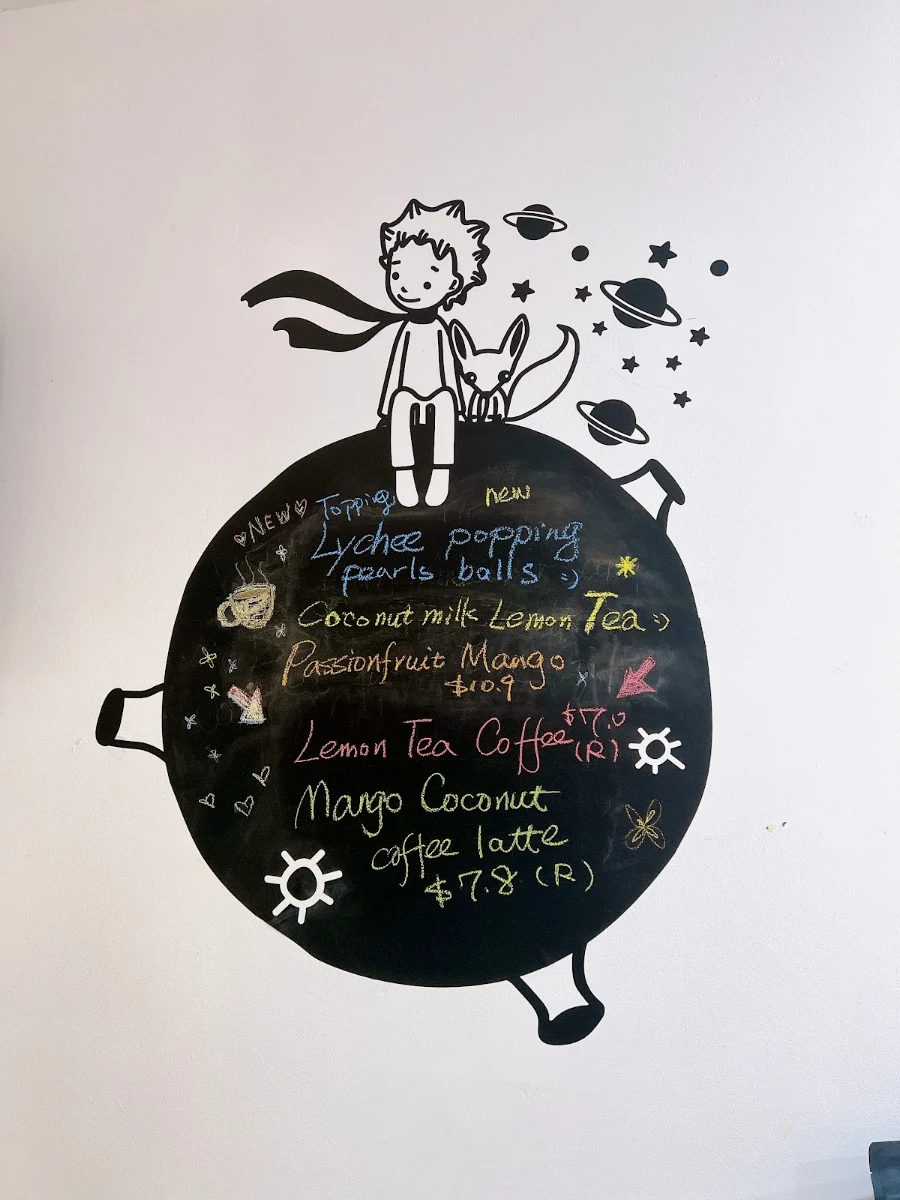 ♡NEW♡ Topping new
Lychee popping
pearls balls :)
Coconut milk Lemon Tea :)
Passionfruit Mango
$10.9
Lemon Tea Coffee $7.0
(R)
Mango Coconut
coffee latte
$7.8 (R)